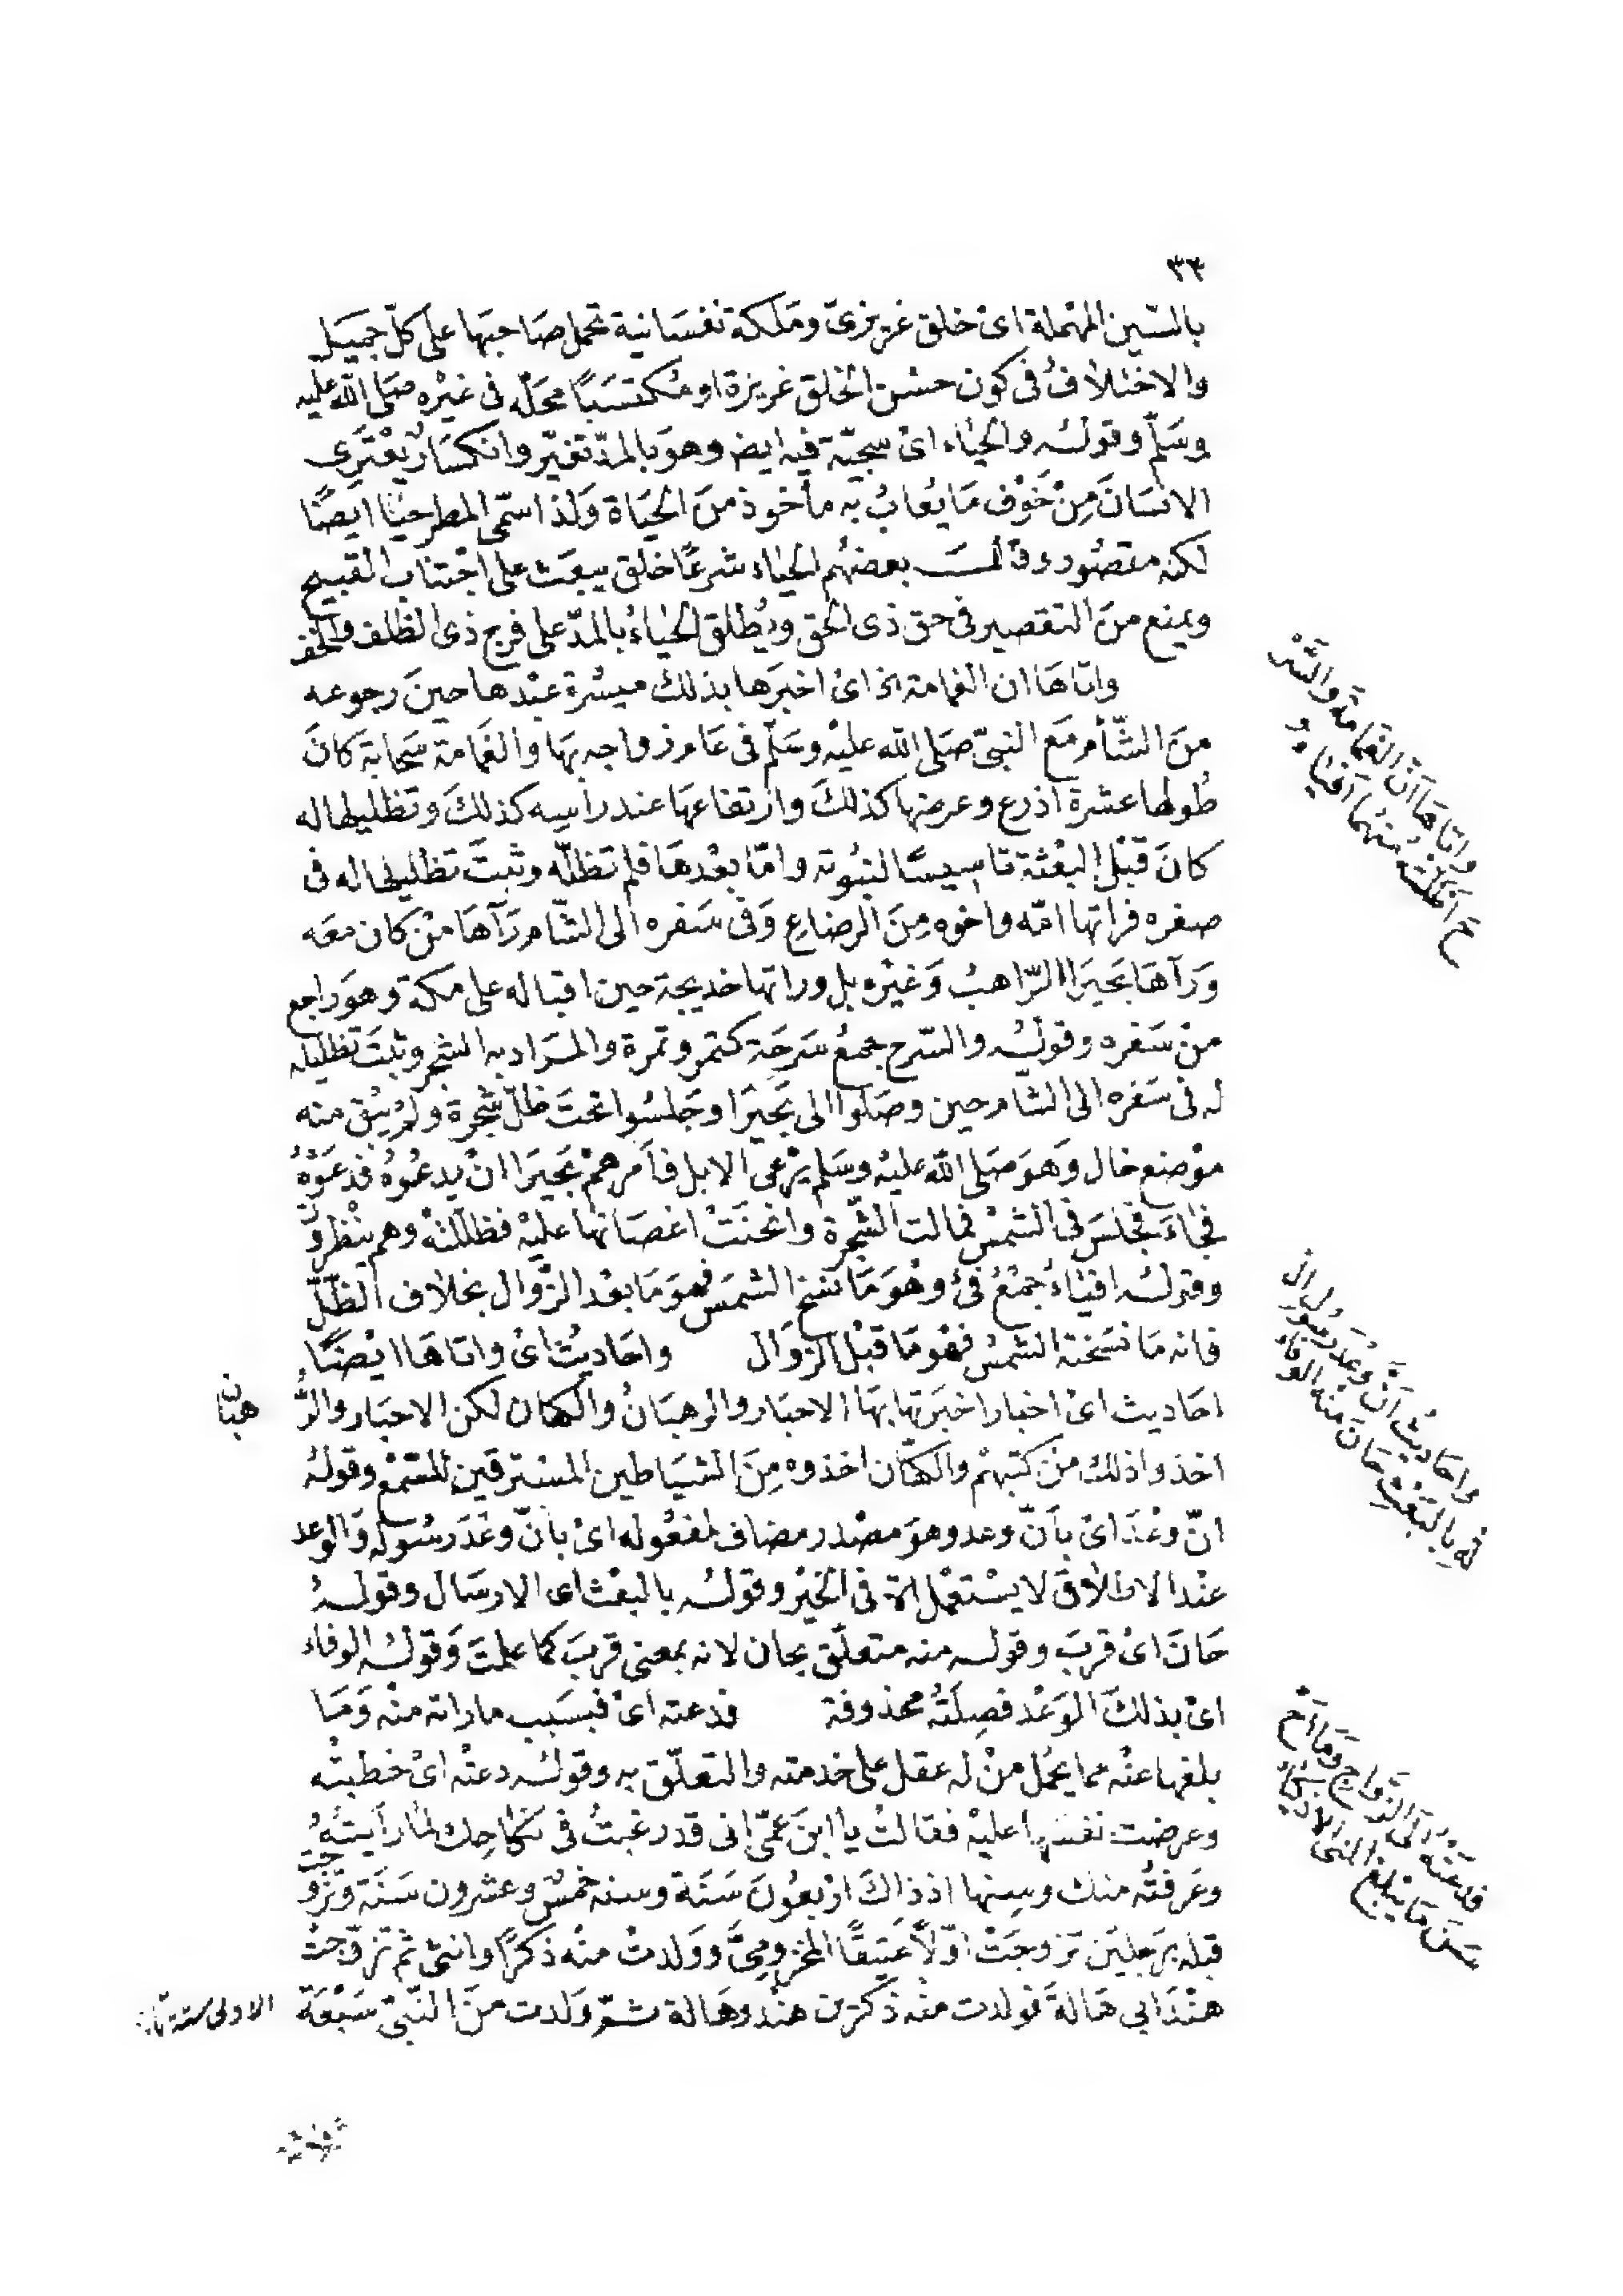 ٣٣
بالسّين المهملة اى خلق غريزىّ ومَلَكة نفسَانية تحمل صَاحبَها على كلّ جميَل
والاختلافُ فى كون حسْن الخلق غريزة او مُكتسَبًا محَلّه فى غيْره صَلى الله عليه
وسَلّم وقولـه والحيَاء اى سجيّة فيه ايض وهوَ بالمدّ تغيّر وانكسَارٌ يعْترى
الانسَانَ مِنْ خَوْف مَا يُعابُ به مأخوذ منَ الحيَاة وَلذا سمّى المطر حيَا ايضًا
لكنه مقصُور وقالـــ بعضهُم الحيَاء شرعًا خلق يبعَث على اجْتناب القبيح
ويمنع منَ التقصير فى حق ذى الحق ويُطلق الحيَاءُ بالمدّ على فرج ذى الظلف والخف
واتاهَا ان الغمامة الخ اىْ اخبرَها بذلك ميسْرة عبْدها حينَ رجوعه
منَ الشّأم مَع النبىّ صَلى الله عليْه وسَلّم فى عَام زواجه بهَا والغمَامة سَحابة كانَ
طُولها عشرة اذرع وعرضها كذلكَ وارْتفاعهَا عند رأسِه كذلكَ وتظليلها له
كانَ قبْل البعْثة تاسِيسًا لنبُوته وامّا بعْدهَا فلم تظلّه وثبتَ تظليلها له فى
صغره فراتها امّه واخوه مِنَ الرضاعِ وَفى سَفره الى الشّام رَآهَا مَنْ كان معَه
وَرَآهَا بَحيَرا الرّاهبُ وَغيْره بل وراتها خديجة حين اقباله على مكة وهوَ راجع
منْ سَفره وقولُـه والسّرح جمعُ سَرحَة كتمر وتمرة والمرَاد به الشجر وثبتَ تظليله
له فى سَفره الى الشام حين وصَلوا الى بَحيَرَا وجَلسُوا تحتَ ظلّ شجرة ولم يبْق منه
موْضع خال وَهوَ صَلى الله عليْه وسَلم يرْعى الابل فأمرهمْ بَحيرَا انْ يدعُوهُ فدعَوْهُ
فجاءَ فجلسَ فى الشمْس فمالت الشّجرة وانحنَتْ اغصَانها عليْه فظلّلتْه وهم ينْظرُونَ
وقولـه افيَاءُ جمْعُ فئ وهْوَ مَا نسَخ الشمسَ فهوَ مَا بعْد الزّوال بخلاف الظّلّ
فانه مَا نسَختْه الشّمسُ فهْوَ مَا قبْل الزوَال واحَاديثُ اىْ واتاهَا ايْضًا
احَاديث اىْ اخبار اخبَرتها بهَا الاحبَار والرهبَانُ والكهان لكن الاحبَار والرُّهبَان
اخذوا ذلك منْ كتبهمْ والكهّان اخذوه مِنَ الشيَاطين المسْترقين للسّمْع وقولـه
انّ وعْدَ اىْ بأنّ وعد وهوَ مصْدر مضاف لمفعُوله اىْ بانّ وعْدَ رسُوله وَالوعد
عنْد الاطلاق لا يسْتعْمل الا فى الخيْر وقولـه بالبعْث اى الارسَال وقولـه
حَانَ اىْ قربَ وقولـه منه متعلّق بحان لانه بمعنى قربَ كما علمتَ وَقولـه الوفاء
اىْ بذلكَ الوَعْد فصِلَتُه محذوفة فدعته اىْ فبسَبب ما راته منْه وَمَا
بلغها عنْه مما يحْمل منْ له عقل على خدمته والتعلّق به وقولـه دعتْه اىْ خطبتْه
وعرضت نفسَها عليْه فقالتْ يا ابنَ عمّى انى قد رغبتُ فى نكاحِك لما رأيتُهُ
وعَرفتُه منك وسِنها اذ ذاكَ ارْبعُونَ سَنَة وسنه خمسٌ وعشرون سَنَة وتزوجت
قبْله برَجليْن تزوجَتْ اوّلاً عَتيقًا المخزومىّ وولدتْ منْه ذكرًا وانثى ثم تزوّجتْ
هنْدَ ابى هَالةَ فولدت منْه ذكرَيْن هنْد وهَالة ثـمّ وَلدت منَ النّبىّ سَبْعَة
واتَاهَا اَنَّ الغمَامَةَ والسَّرْ
حَ اظَلَّتْهُ منْهُما اَفْيَاءُ
واحَاديثُ اَنَّ وعْدَ رسُولِ الله
لهِ بالبَعْثِ حَانَ منْه الوفَاءُ
فدَعَتْهُ اِلى الزَّواجِ وَمَا اَحْ
سَنَ مَا يَبْلغُ المُنى الاذكيَاءُ